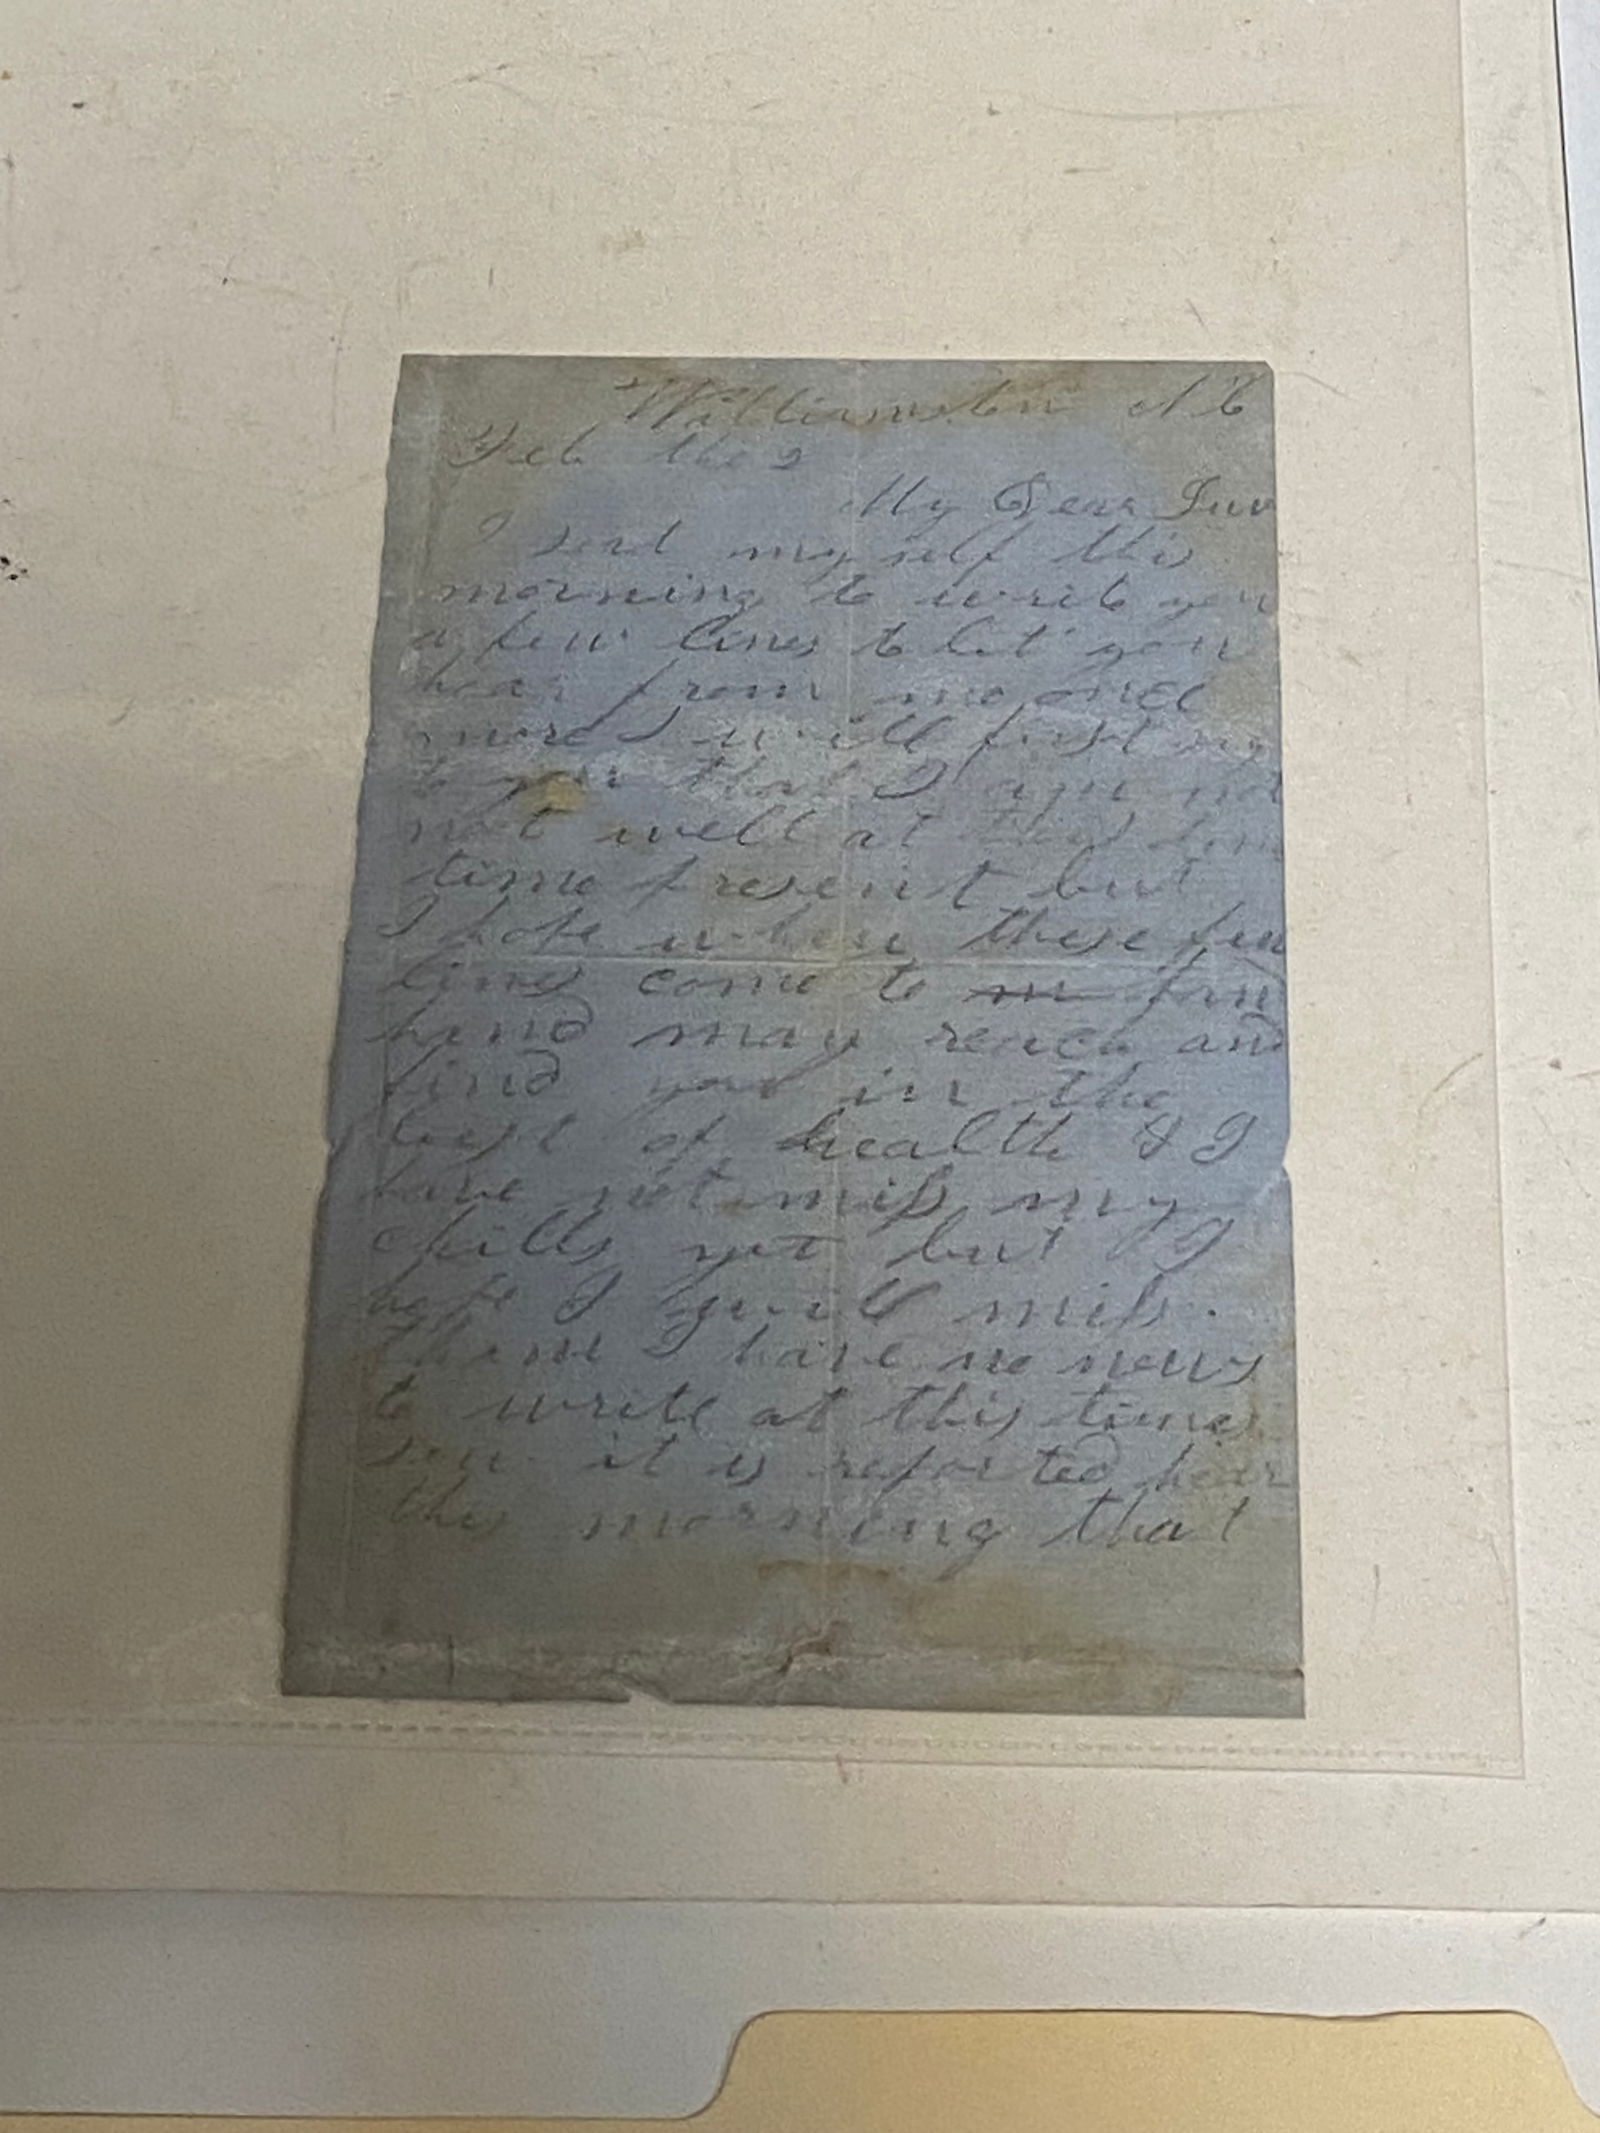 Williamston N C
Feb the 2
My Dear
I seat my self this
morning to write you
a few lines to let you
hear from me once
more I will first say
to you that I am not
not well at this
time present but
I hope when these few
lines come to
hand may reach and
find you in the
best of health & I
have not miss my
chills yet but I
hope I will miss
them I have no news
to write at this time
it is reported hear
this morning that